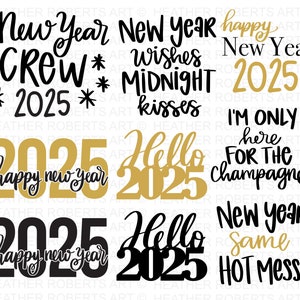 New Year
CREW
2025
New Year
wishes
MIDNIGHT
kisses
happy
New Year
2025
2025
happy new year
Hello
2025
I'M ONLY
here
FOR THE
champagne
2025
happy new year
Hello
2025
New Year
same
HOT MESS